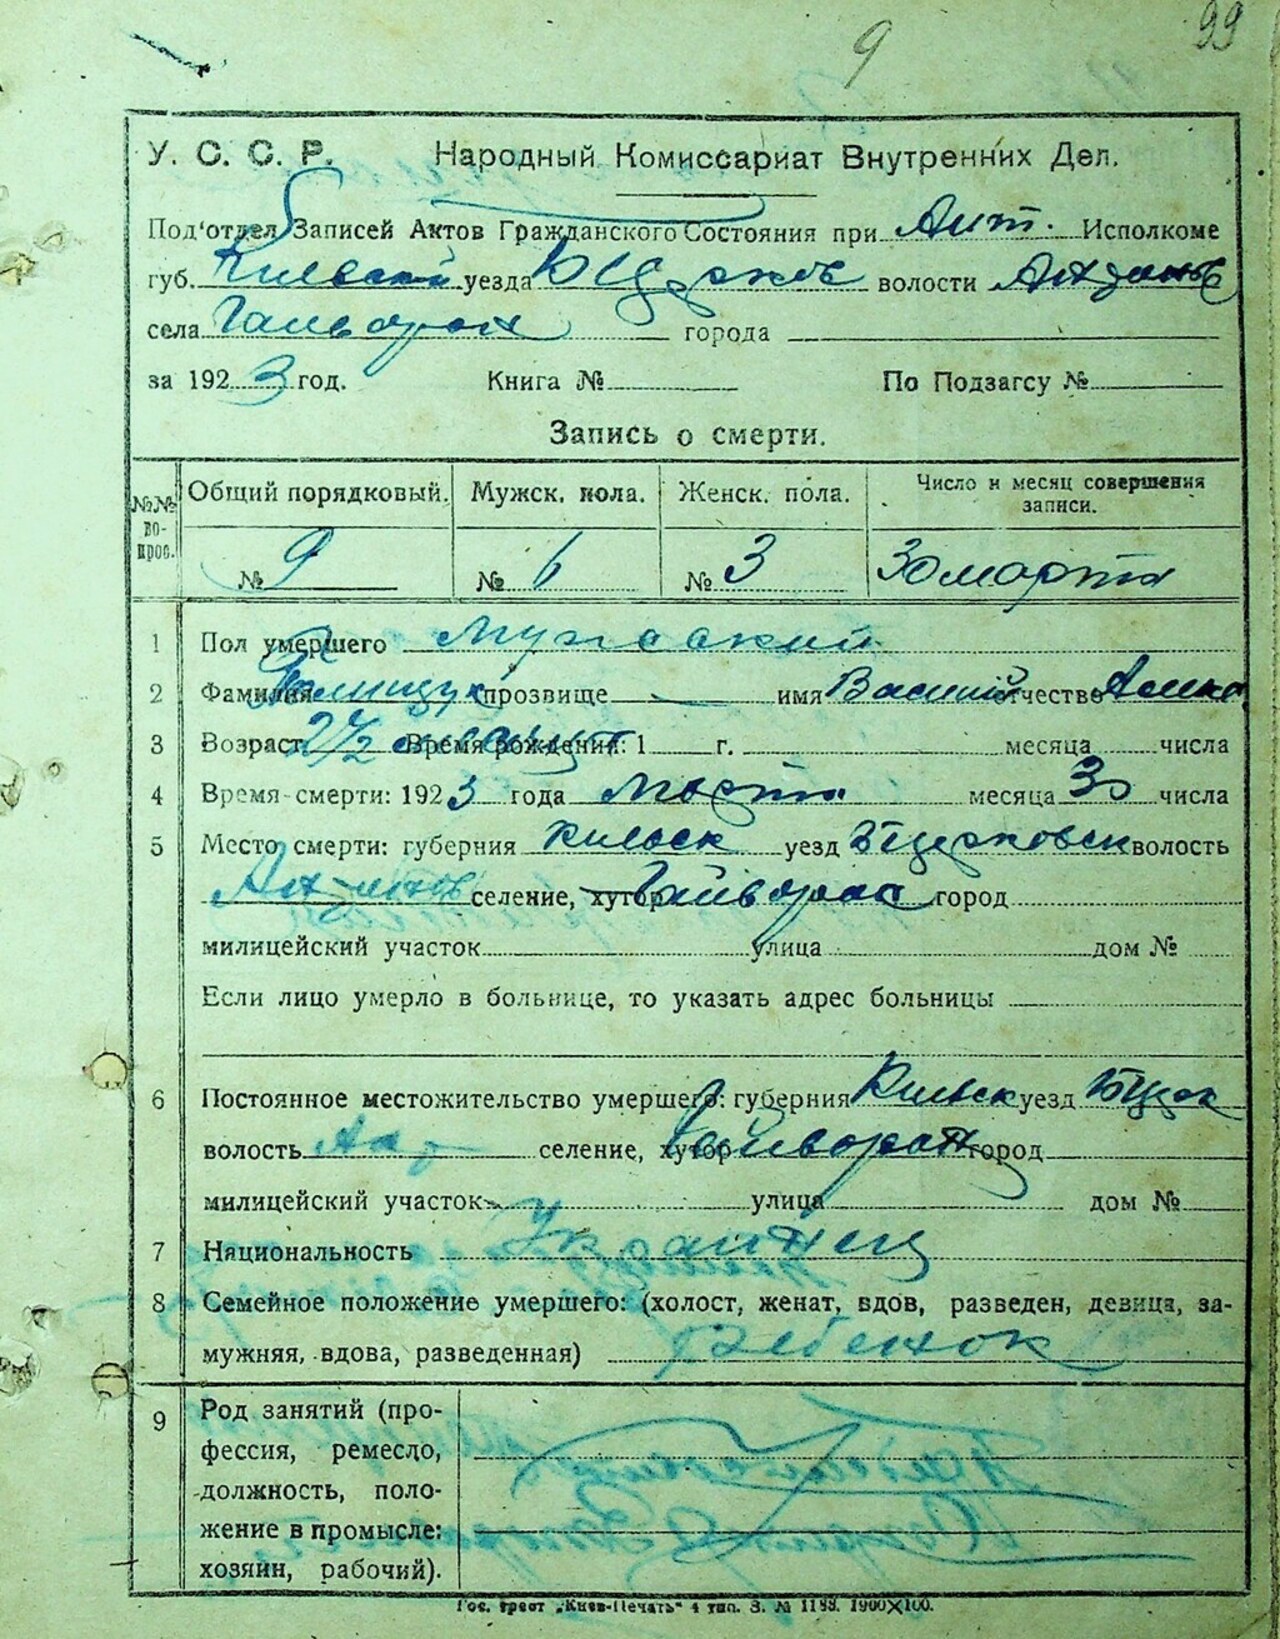 9 99
У. С. С. Р. Народный Комиссариат Внутренних Дел.
Под'отдел Записей Актов Гражданского Состояния при Исполкоме
губ. Киевской уезда Бцерков волости
села Гайворон города
за 1923 год. Книга № По Подзагсу №
Запись о смерти.
№№ вопрос. Общий порядковый. Мужск. пола. Женск. пола. Число и месяц совершения записи.
№ 9 № 6 № 3 30 марта
1 Пол умершего Мужской
2 Фамилия Полищук прозвище имя Василий отчество
3 Возраст 2½ Время рождения: 1 г. месяца числа
4 Время смерти: 1923 года Марта месяца 30 числа
5 Место смерти: губерния Киевск уезд Бцерковск волость
селение, хутор Гайворон город
милицейский участок улица дом №
Если лицо умерло в больнице, то указать адрес больницы
6 Постоянное местожительство умершего: губерния Киевск уезд Бцерк
волость селение, хутор Гайворон город
милицейский участок улица дом №
7 Национальность Украинец
8 Семейное положение умершего: (холост, женат, вдов, разведен, девица, за-
мужняя, вдова, разведенная) Ребенок
9 Род занятий (про-
фессия, ремесло,
должность, поло-
жение в промысле:
хозяин, рабочий).
Гос. трест „Киев-Печать" 4 тип. З. № 1183. 1900X100.